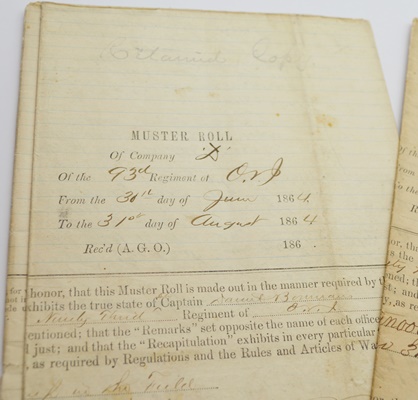 Retained Copy
MUSTER ROLL
Of Company "D"
Of the 93rd Regiment of O.V.I
From the 30th day of June 1864.
To the 31st day of August 1864
Rec'd (A. G. O.) 186 .
honor, that this Muster Roll is made out in the manner required by
exhibits the true state of Captain Daniel
Ninety Third Regiment of O.V.I
entioned; that the "Remarks" set opposite the name of each office
l just; and that the "Recapitulation" exhibits in every particular
, as required by Regulations and the Rules and Articles of Wa
in the Field